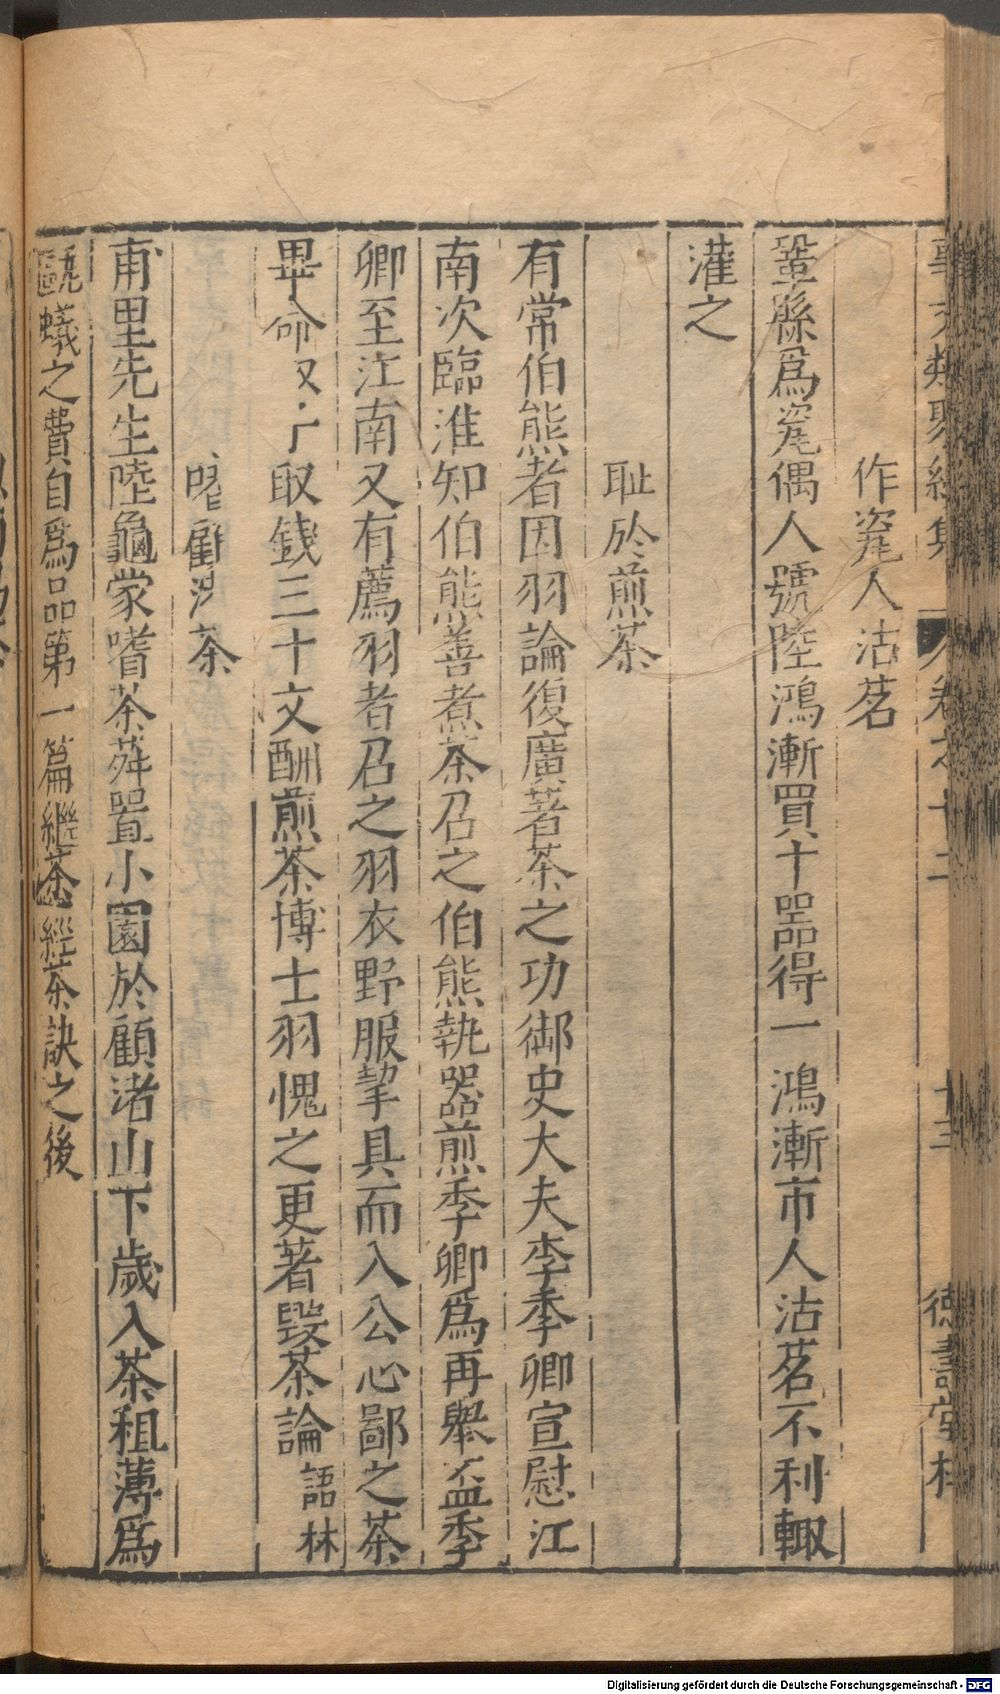 事文類聚續集 卷之十二 十三 德壽堂梓
作瓷人沽茗
鞏縣爲瓷偶人號陸鴻漸買十器得一鴻漸市人沽茗不利輙
灌之
耻於煎茶
有常伯熊者因羽論復廣著茶之功御史大夫李季卿宣慰江
南次臨淮知伯熊善煮茶召之伯熊執器煎季卿爲再舉盃季
卿至江南又有薦羽者召之羽衣野服挈具而入公心鄙之茶
畢命奴子取錢三十文酬煎茶博士羽愧之更著毀茶論 語林
嗜顧渚茶
甫里先生陸龜蒙嗜茶荈置小園於顧渚山下歲入茶租薄爲
甌蟻之費自爲品第一篇繼茶經茶訣之後
Digitalisierung gefördert durch die Deutsche Forschungsgemeinschaft - DFG